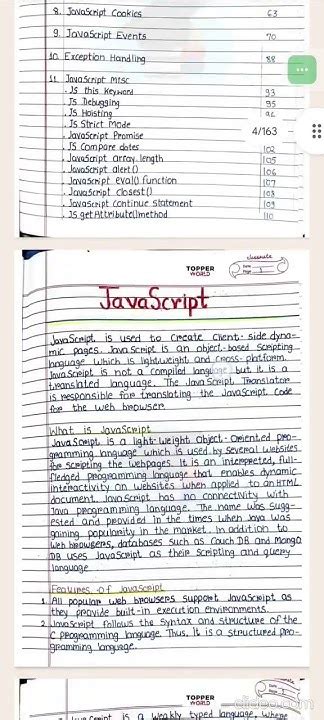 8. JavaScript Cookies 63
9. JavaScript Events 70
10. Exception Handling 88
11. JavaScript Misc
. JS this Keyword 93
. JS Debugging 95
. JS Hoisting
. JS Strict Mode
. JavaScript Promise
. JS Compare dates 102
. JavaScript array length 105
. JavaScript alert() 106
. JavaScript eval() function 107
. JavaScript closest() 108
. JavaScript continue statement 109
. JS getAttribute() method 110
4/163
TOPPER
WORLD
classmate
Date
Page 1
JavaScript
JavaScript is used to create client-side dyna-
mic pages. JavaScript is an object-based scripting
language which is lightweight and cross-platform.
JavaScript is not a compiled language, but it is a
translated language. The JavaScript Translator
is responsible for translating the JavaScript code
for the web browser.
What is JavaScript
JavaScript is a light-weight object-oriented pro-
gramming language which is used by several websites
for scripting the webpages. It is an interpreted, full-
fledged programming language that enables dynamic
interactivity on websites when applied to an HTML
document. JavaScript has no connectivity with
Java programming language. The name was sugg-
ested and provided in the times when Java was
gaining popularity in the market. In addition to
web browsers, databases such as Couch DB and Mongo
DB uses JavaScript as their scripting and query
language.
Features of JavaScript
1. All popular web browsers support JavaScript as
they provide built-in execution environments.
2. JavaScript follows the syntax and structure of the
C programming language. Thus, it is a structured pro-
gramming language.
TOPPER
WORLD
JavaScript is a weakly typed language, where